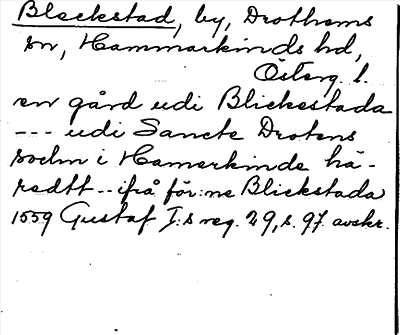 Bleckstad, by, Drothems
sn, Hammarkinds hd,
Österg. l.
en gård udi Blickestada
--- udi Sancte Drotens
sochn i Hamerkinde hä-
redtt -- ifrå för:ne Blickstada
1559 Gustaf I:s reg. 29, s. 97. avskr.